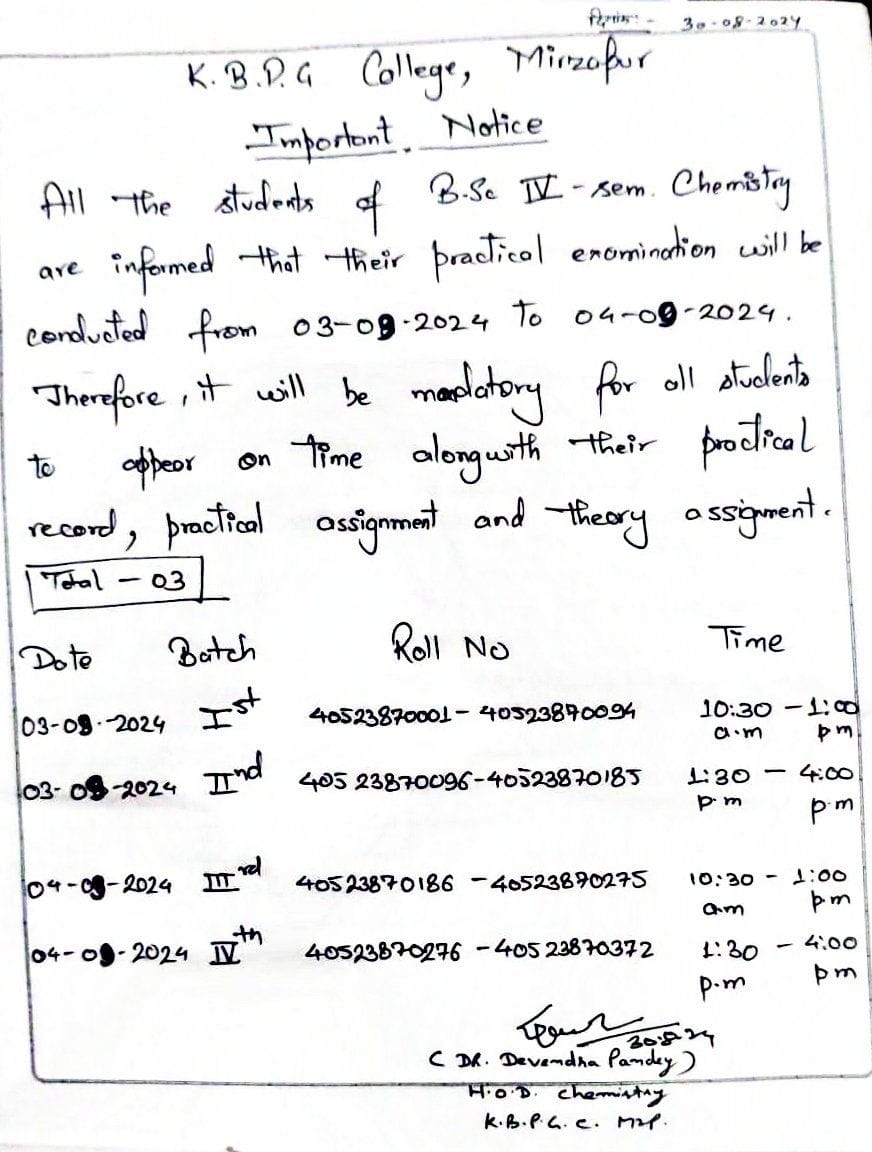 दिनांक:- 30-08-2024
K.B.P.G College, Mirzapur
Important Notice
All the students of B.Sc IV-sem. Chemistry
are informed that their practical examination will be
conducted from 03-09-2024 To 04-09-2024.
Therefore, it will be mandatory for all students
to appear on Time alongwith their practical
record, practical assignment and theory assignment.
Total - 03
Date Batch Roll No Time
03-09-2024 Ist 40523870001-40523870094 10:30 - 1:00
a.m pm
03-09-2024 IInd 40523870096-40523870185 1:30 - 4:00
p.m p.m
04-09-2024 IIIrd 40523870186-40523870275 10:30 - 1:00
am pm
04-09-2024 IVth 40523870276-40523870372 1:30 - 4:00
p.m pm
30.8.24
(DR. Devendra Pandey)
H.O.D. Chemistry
K.B.P.G.C. MZP.